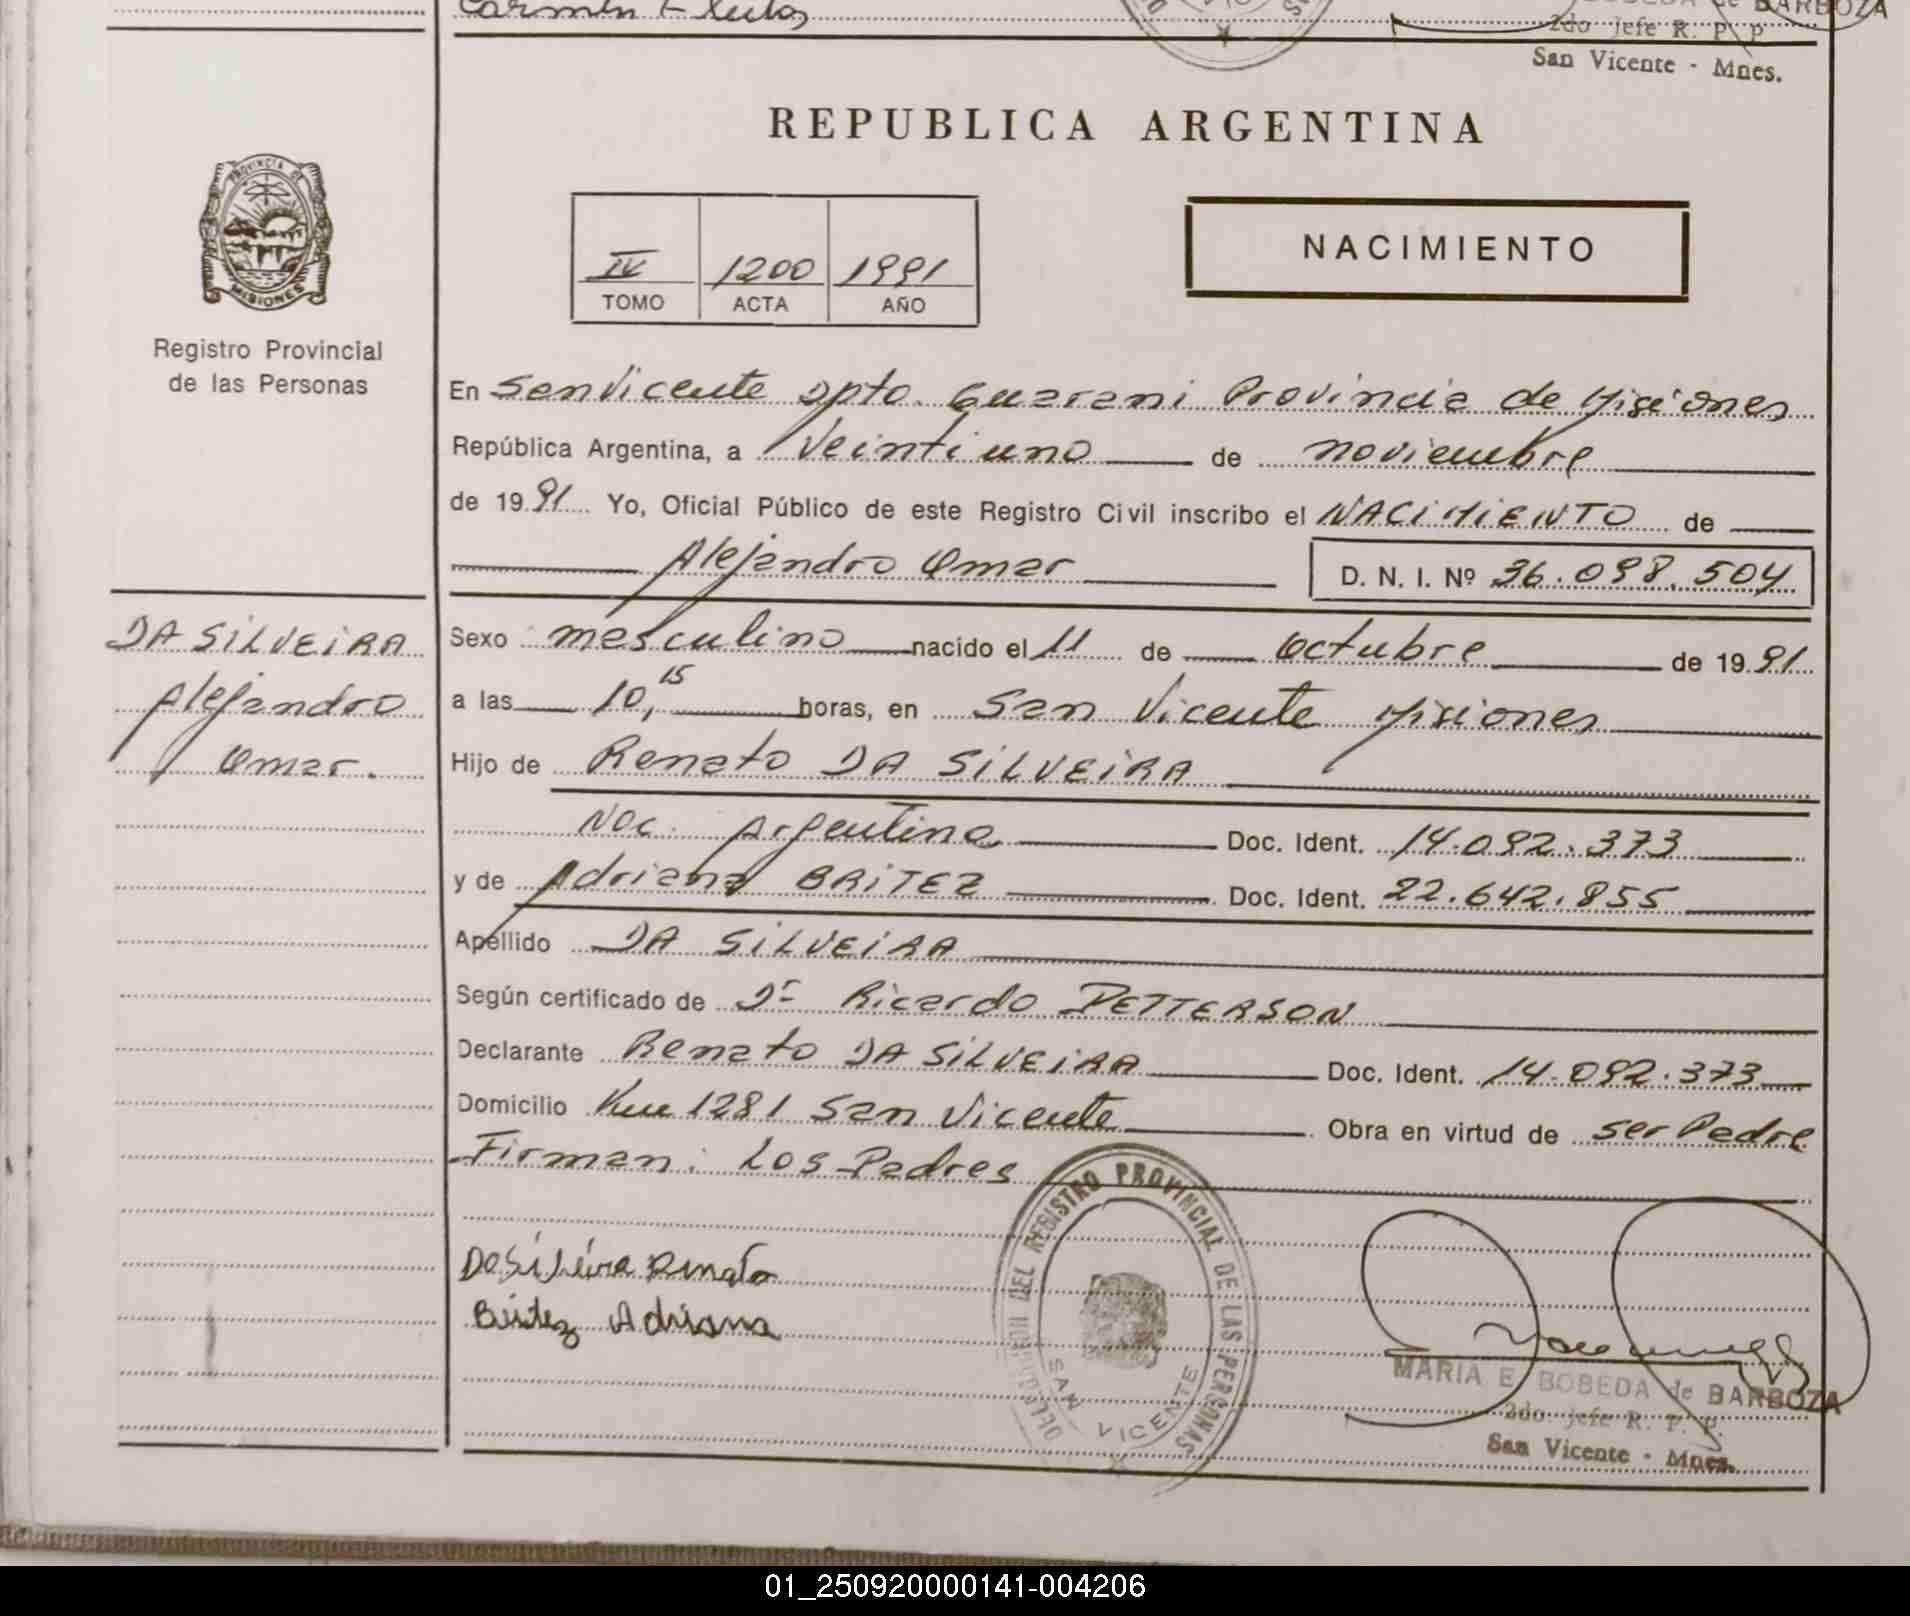 Carmen
BOBEDA de BARBOZA
2do Jefe R. P. P.
San Vicente - Mnes.
REPUBLICA ARGENTINA
PROVINCIA DE
MISIONES
Registro Provincial
de las Personas
IV 1200 1991
TOMO ACTA AÑO
NACIMIENTO
En San Vicente Dpto. Guarani Provincia de Misiones
República Argentina, a Veintiuno de noviembre
de 1991 Yo, Oficial Público de este Registro Civil inscribo el NACIMIENTO de
Alejandro Omar D. N. I. Nº 36.098.504
DA SILVEIRA
Alejandro
Omar.
Sexo masculino nacido el 11 de octubre de 1991
a las 10,15 horas, en San Vicente Misiones
Hijo de Renato DA SILVEIRA
Nac. Argentina Doc. Ident. 14.092.373
y de Adriana BRITEZ Doc. Ident. 22.642.855
Apellido DA SILVEIRA
Según certificado de Dr Ricardo PETTERSON
Declarante Renato DA SILVEIRA Doc. Ident. 14.092.373
Domicilio Km 1281 San Vicente Obra en virtud de ser Padre
Firman: Los Padres
Da Silveira Renato
Britez Adriana
DELEGACION DEL REGISTRO PROVINCIAL DE LAS PERSONAS
SAN VICENTE
MARIA E. BOBEDA de BARBOZA
2do. Jefe R. P. P.
San Vicente - Mnes.
01_250920000141-004206